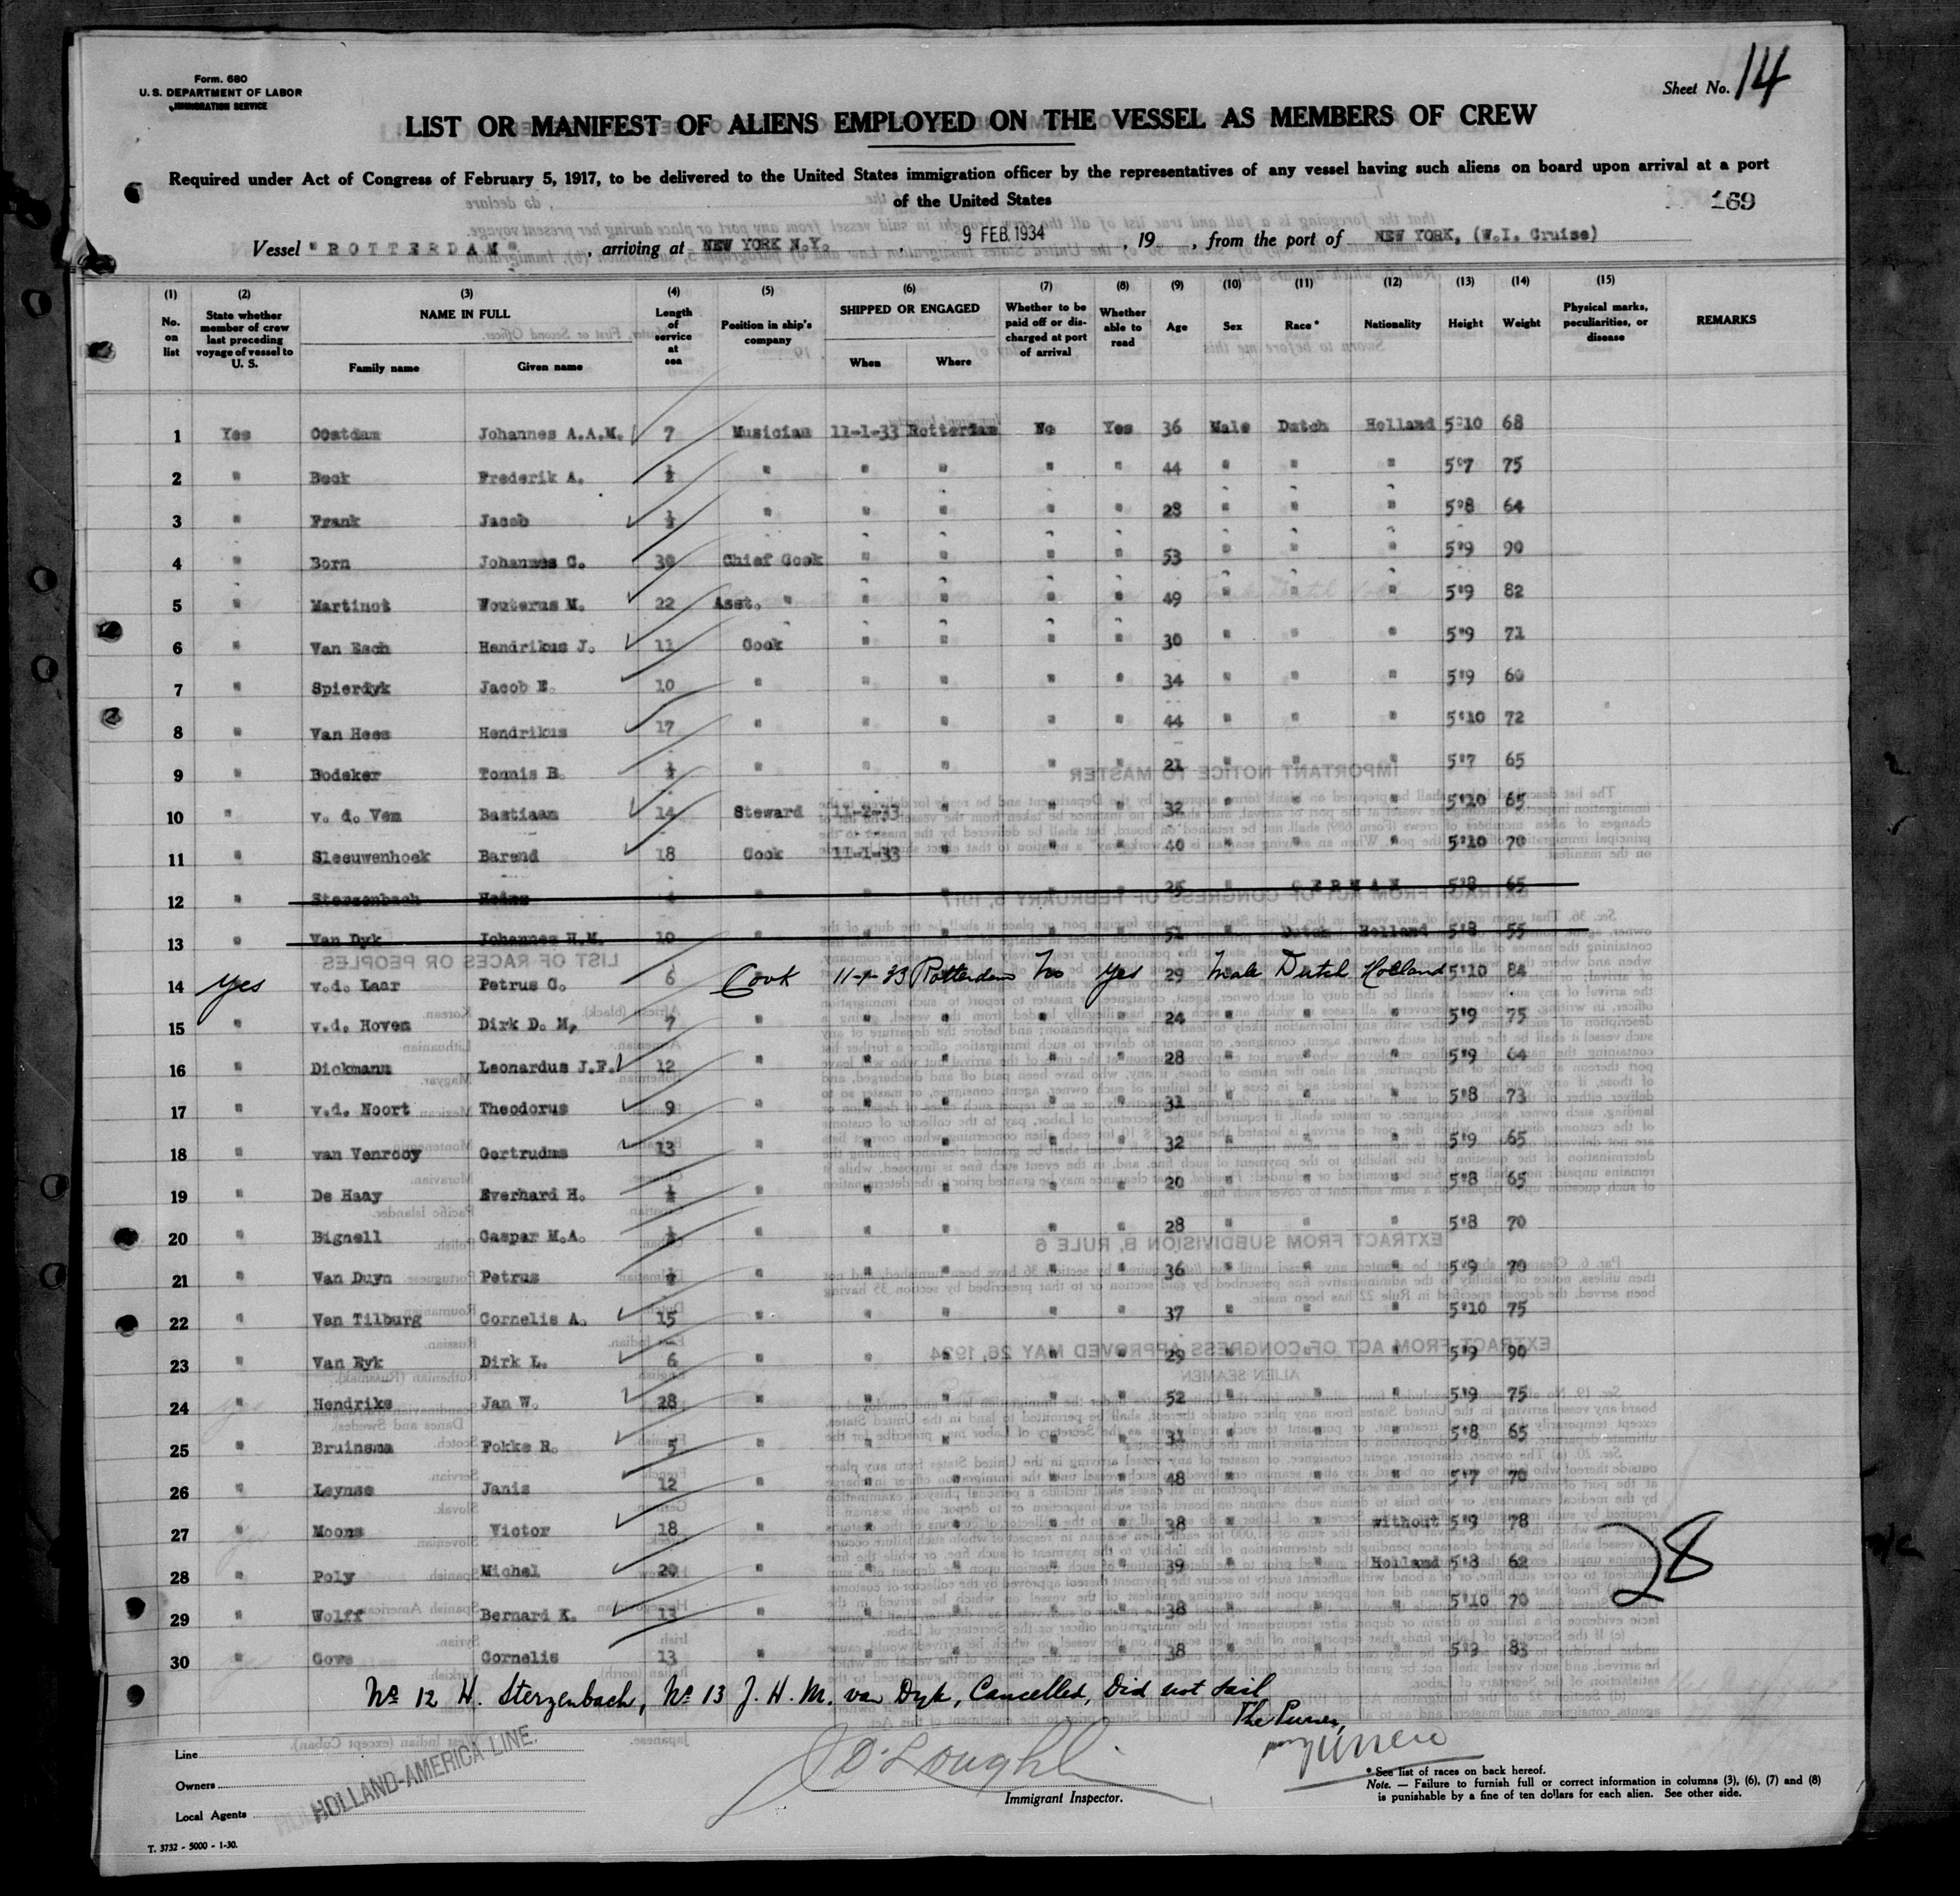 Form. 680
U. S. DEPARTMENT OF LABOR
IMMIGRATION SERVICE
Sheet No. 14
LIST OR MANIFEST OF ALIENS EMPLOYED ON THE VESSEL AS MEMBERS OF CREW
Required under Act of Congress of February 5, 1917, to be delivered to the United States immigration officer by the representatives of any vessel having such aliens on board upon arrival at a port
of the United States
169
Vessel "ROTTERDAM", arriving at NEW YORK N.Y., 9 FEB. 1934, 19 , from the port of NEW YORK, (W.I. Cruise)
(1) No. on list (2) State whether member of crew last preceding voyage of vessel to U. S. (3) NAME IN FULL Family name Given name (4) Length of service at sea (5) Position in ship's company (6) SHIPPED OR ENGAGED When Where (7) Whether to be paid off or discharged at port of arrival (8) Whether able to read (9) Age (10) Sex (11) Race* (12) Nationality (13) Height (14) Weight (15) Physical marks, peculiarities, or disease REMARKS
1 Yes Oostdam Johannes A.A.M. 7 Musician 11-1-33 Rotterdam No Yes 36 Male Dutch Holland 5'10 68
2 " Beck Frederik A. ½ " " " " " 44 " " " 5'7 75
3 " Frank Jacob ½ " " " " " 28 " " " 5'8 64
4 " Born Johannes C. 30 Chief Cook " " " " 53 " " " 5'9 90
5 " Martinot Wouterus M. 22 Asst. " " " " " 49 " " " 5'9 82
6 " Van Esch Hendrikus J. 11 Cook " " " " 30 " " " 5'9 71
7 " Spierdyk Jacob E. 10 " " " " " 34 " " " 5'9 60
8 " Van Hees Hendrikus 17 " " " " " 44 " " " 5'10 72
9 " Bodeker Tonnis B. ½ " " " " " 21 " " " 5'7 65
10 " v. d. Vem Bastiaan 14 Steward 11-2-33 " " " 32 " " " 5'10 65
11 " Sleeuwenhoek Barend 18 Cook 11-1-33 " " " 40 " " " 5'10 70
12 " Sterzenbach Heinz 4 " " " " " 25 " GERMAN 5'8 65
13 " Van Dyk Johannes H.M. 10 " " " " " 51 " Dutch Holland 5'8 55
14 Yes v.d. Laar Petrus C. 6 Cook 11-1-33 Rotterdam No Yes 29 Male Dutch Holland 5'10 84
15 " v.d. Hoven Dirk D. M. 7 " " " " " 24 " " " 5'9 75
16 " Dickmann Leonardus J.F. 12 " " " " " 28 " " " 5'9 64
17 " v.d. Noort Theodorus 9 " " " " " 31 " " " 5'8 73
18 " van Venrooy Gertrudus 13 " " " " " 32 " " " 5'9 65
19 " De Haay Everhard H. ½ " " " " " 20 " " " 5'8 65
20 " Bignell Caspar M.A. ½ " " " " " 28 " " " 5'8 70
21 " Van Duyn Petrus ½ " " " " " 36 " " " 5'9 70
22 " Van Tilburg Cornelis A. 15 " " " " " 37 " " " 5'10 75
23 " Van Eyk Dirk L. 6 " " " " " 29 " " " 5'9 90
24 " Hendriks Jan W. 28 " " " " " 52 " " " 5'9 75
25 " Bruinsma Fokke R. 5 " " " " " 31 " " " 5'8 65
26 " Leynse Janis 12 " " " " " 48 " " " 5'7 70
27 " Moons Victor 18 " " " " " 38 " " without 5'9 78
28 " Poly Michel 20 " " " " " 39 " " Holland 5'8 62
29 " Wolff Bernard K. 13 " " " " " 38 " " " 5'10 70
30 " Gows Cornelis 13 " " " " " 38 " " " 5'9 83
28
No 12 H. Sterzenbach, No 13 J. H. M. van Dyk, Cancelled, Did not sail
The Purser,
Line
Owners
Local Agents
HOLLAND-AMERICA LINE.
J O'Loughlin
Immigrant Inspector.
* See list of races on back hereof.
Note. — Failure to furnish full or correct information in columns (3), (6), (7) and (8)
is punishable by a fine of ten dollars for each alien. See other side.
T. 3732 - 5000 - 1-30.